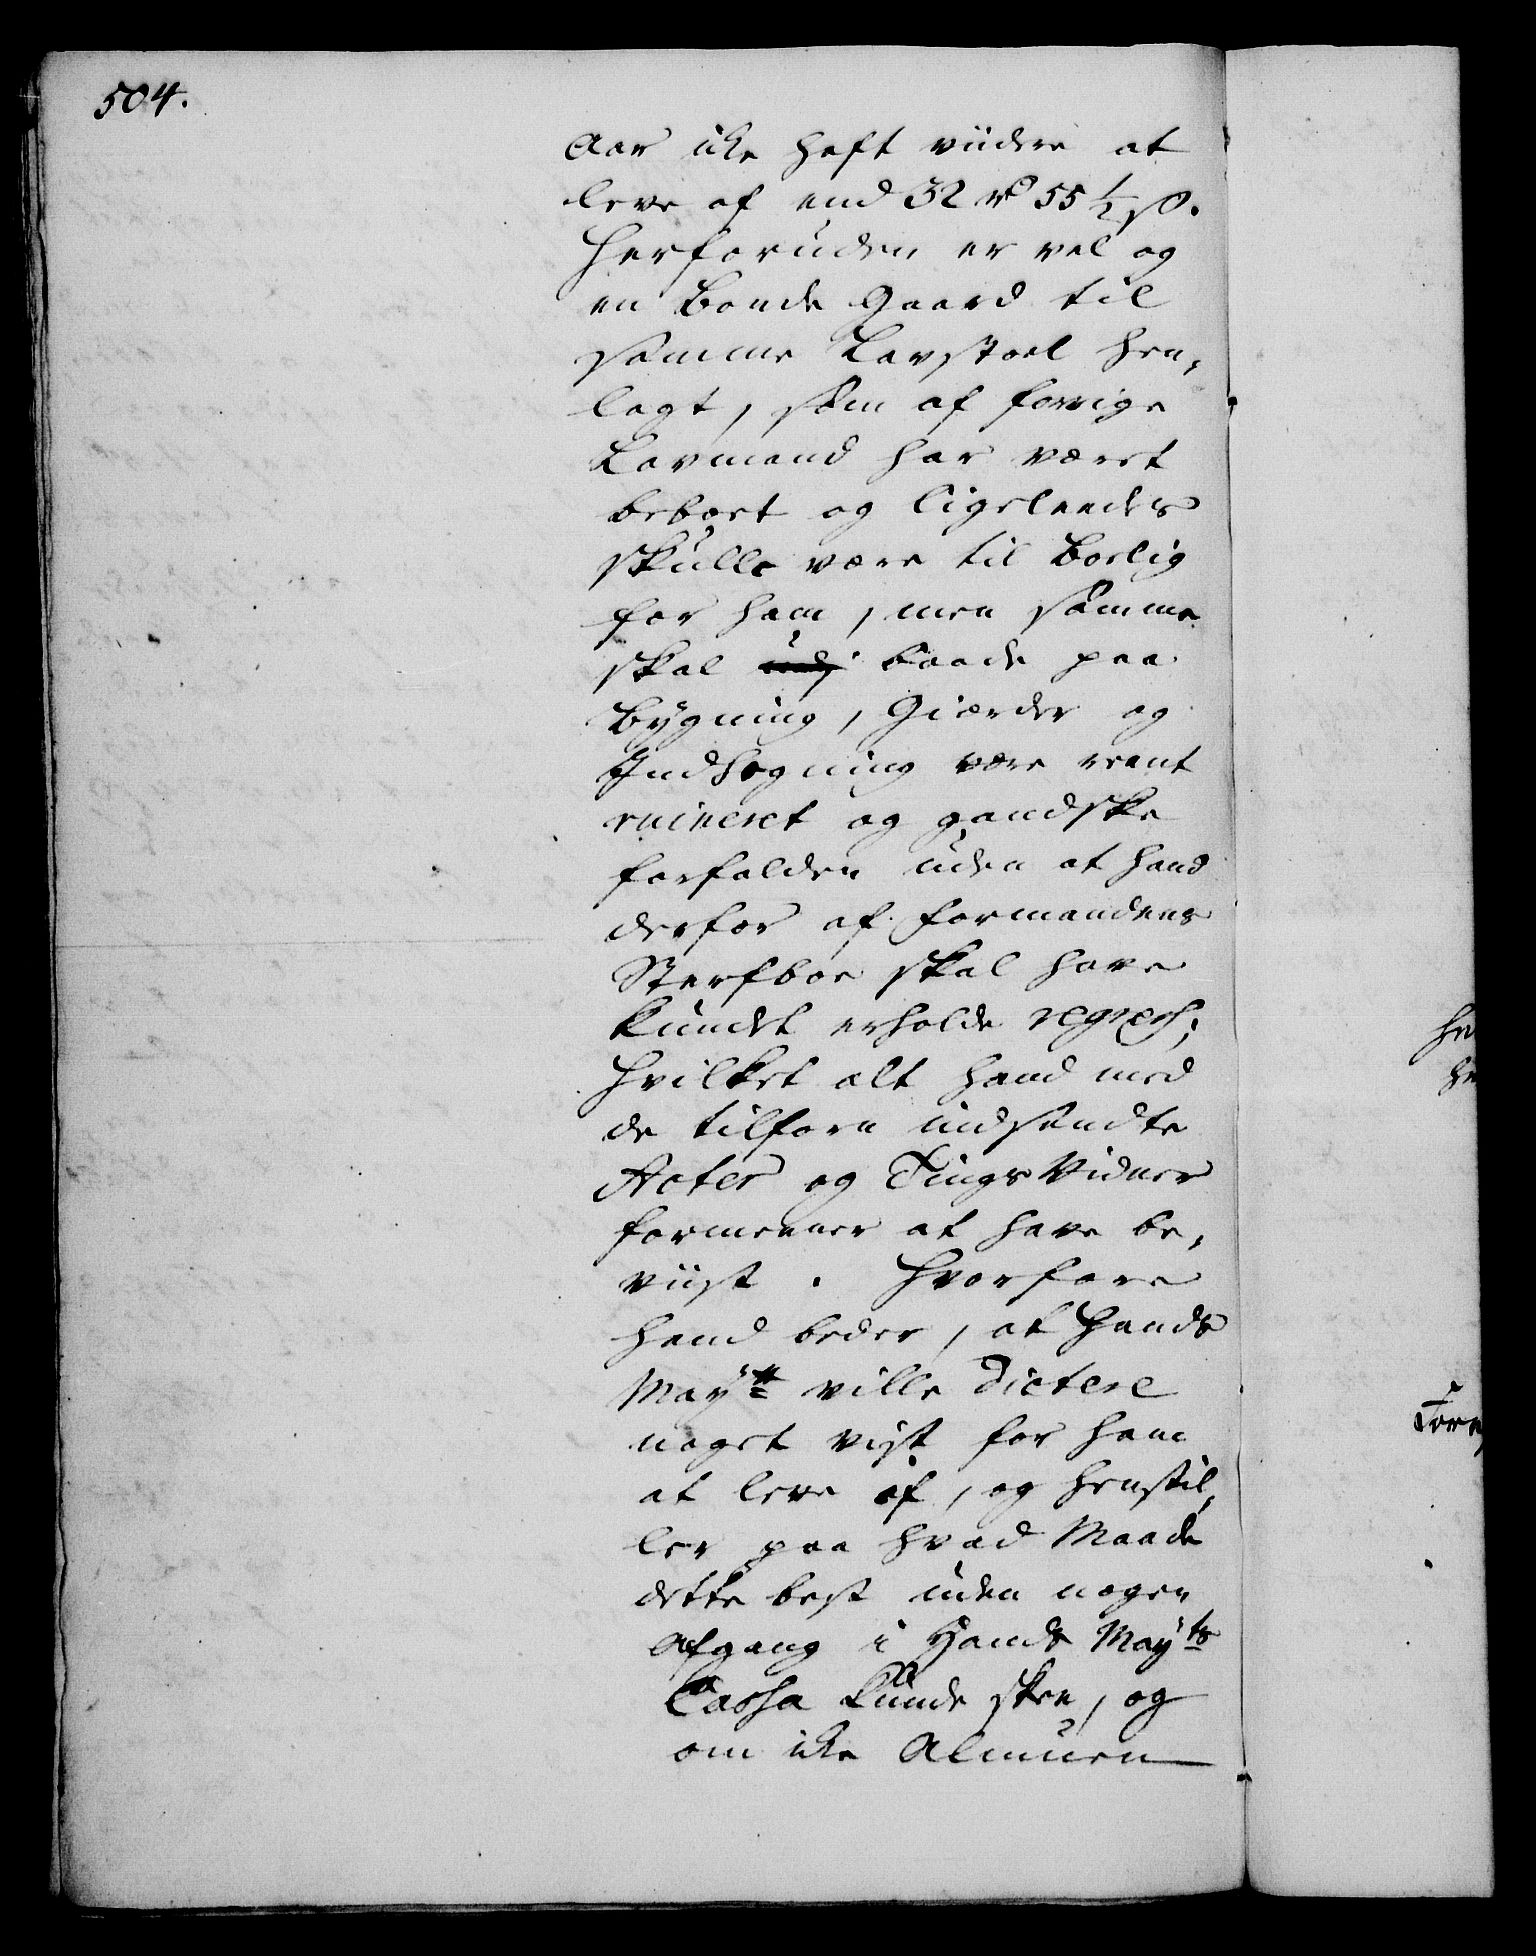 504.
Aar icke haft viidere at
leve af end 32 rd 55 1/2 s.
Herforuden er vel og
en Bonde Gaard til
samme Lavstoel hen,
lagt, som af forrige
Lavmand har været
beboet og ligeleedes
skulle være til Boelig
for ham, men samme
skal udj baade paa
Bygning, Giærder og
Indhegning være reent
ruineret og gandske
forfalden uden at hand
derfor af Formandens
Sterfboe skal have
kundet erholde regress;
Hvilket alt hand med
de tilforn indsendte
Acter og Tings Vidner
formeener at have be,
viist. Hvorfore
hand beder, at Hands
Maytt ville dictere
noget vist for ham
at leve af, og henstil,
ler paa hvad Maade
dette best uden nogen
Afgang i Hands Mayts
Cassa kunde skee, og
om icke Almuen